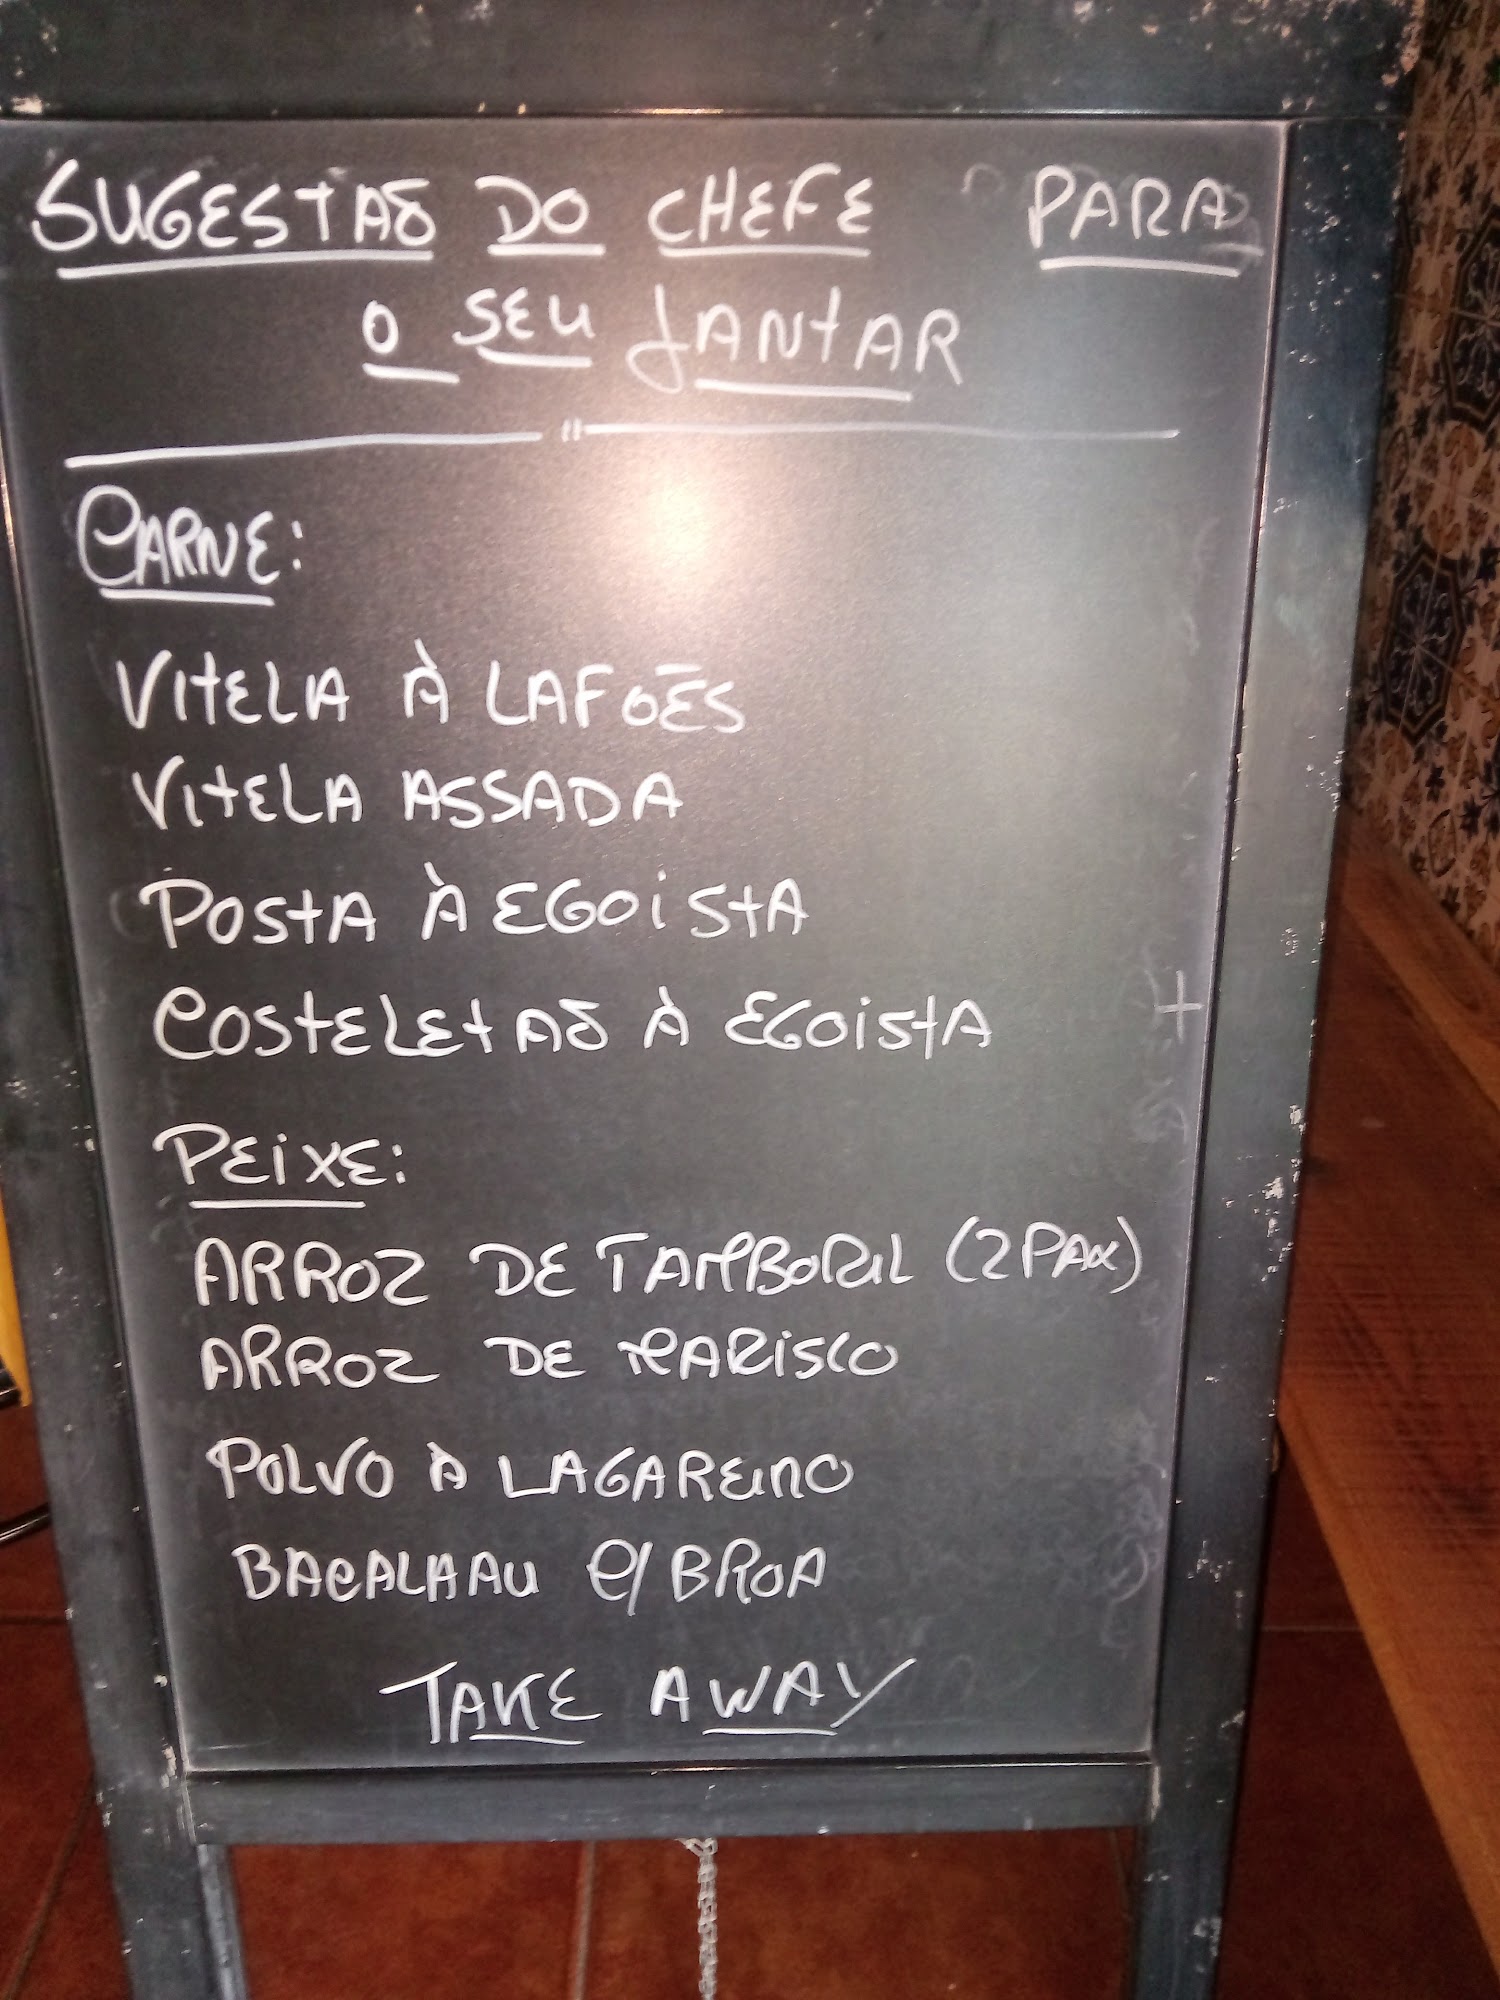 SUGESTAS DO CHEFE PARA
O SEU JANTAR
CARNE:
VITELA À LAFOES
VITELA ASSADA
POSTA À EGOISTA
COSTELETAS À EGOISTA
PEIXE:
ARROZ DE TAMBORIL (2 PAX)
ARROZ DE MARISCO
POLVO À LAGAREINO
BACALHAU C/ BROA
TAKE AWAY